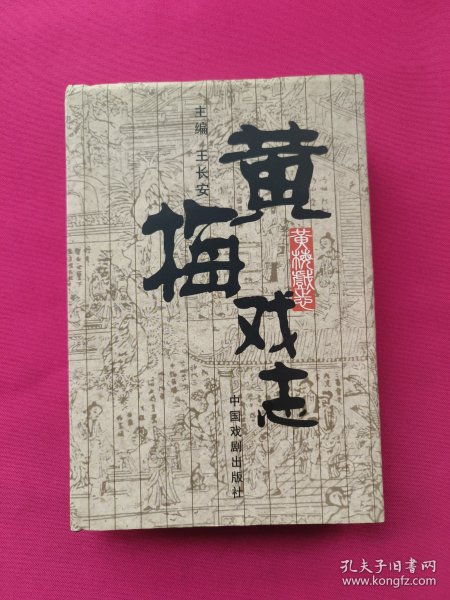 主编 王长安
黄梅戏志
黄梅戲志
中国戏剧出版社
孔夫子旧书网
www.kongfz.com